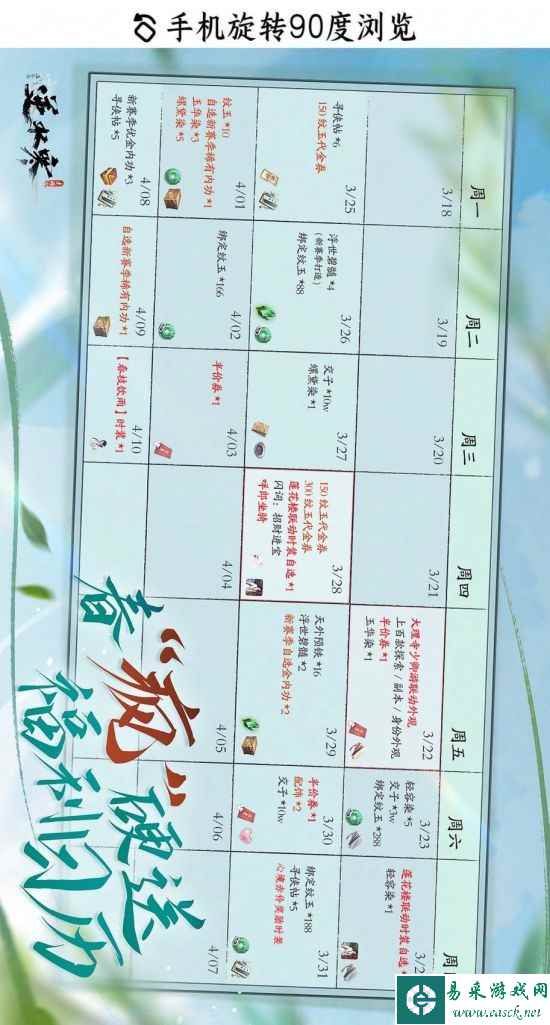 手机旋转90度浏览
逆水寒
周一
周二
周三
周四
周五
周六
3/18
3/19
3/20
3/21
3/22
大理寺少卿游联动外观
上百款探索/副本/身份外观
半价券*1
玉华染*1
3/23
轻容染*5
交子*3w
绑定纹玉*288
莲花楼联动时装自选
轻容染*1
3/25
寻侠帖*6
150纹玉代金券
3/26
浮世碧髓*4
(新赛季打造)
绑定纹玉*88
3/27
交子*10w
螺黛染*1
3/28
150纹玉代金券
300纹玉代金券
莲花楼联动时装自选*1
闪词:招财进宝
呼朗坐骑
3/29
天外陨铁*16
浮世碧髓*2
新赛季自选金内功*2
3/30
半价券*1
配饰*2
交子*10w
3/31
绑定纹玉*188
寻侠帖*5
4/01
纹玉*10
自选新赛季稀有内功*1
玉华染*3
螺黛染*5
4/02
绑定纹玉*166
4/03
半价券*1
4/04
4/05
4/06
4/07
4/08
新赛季优金内功*3
寻侠帖*5
4/09
自选新赛季稀有内功*1
4/10
【春枝饮雨】时装*1
春“疯”硬送
福利日历
易采游戏网
www.easck.net